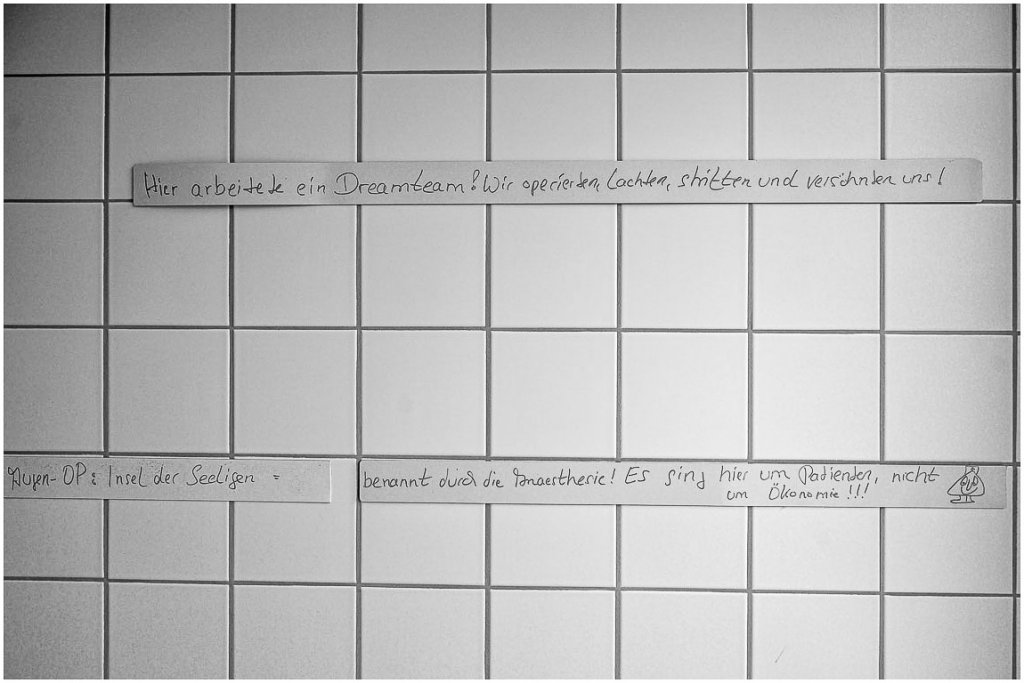 Hier arbeitete ein Dreamteam! Wir operierten, lachten, stritten und versöhnten uns!
Augen-OP: Insel der Seeligen =
benannt durch die Anaesthesie! Es ging hier um Patienten, nicht
um Ökonomie!!!